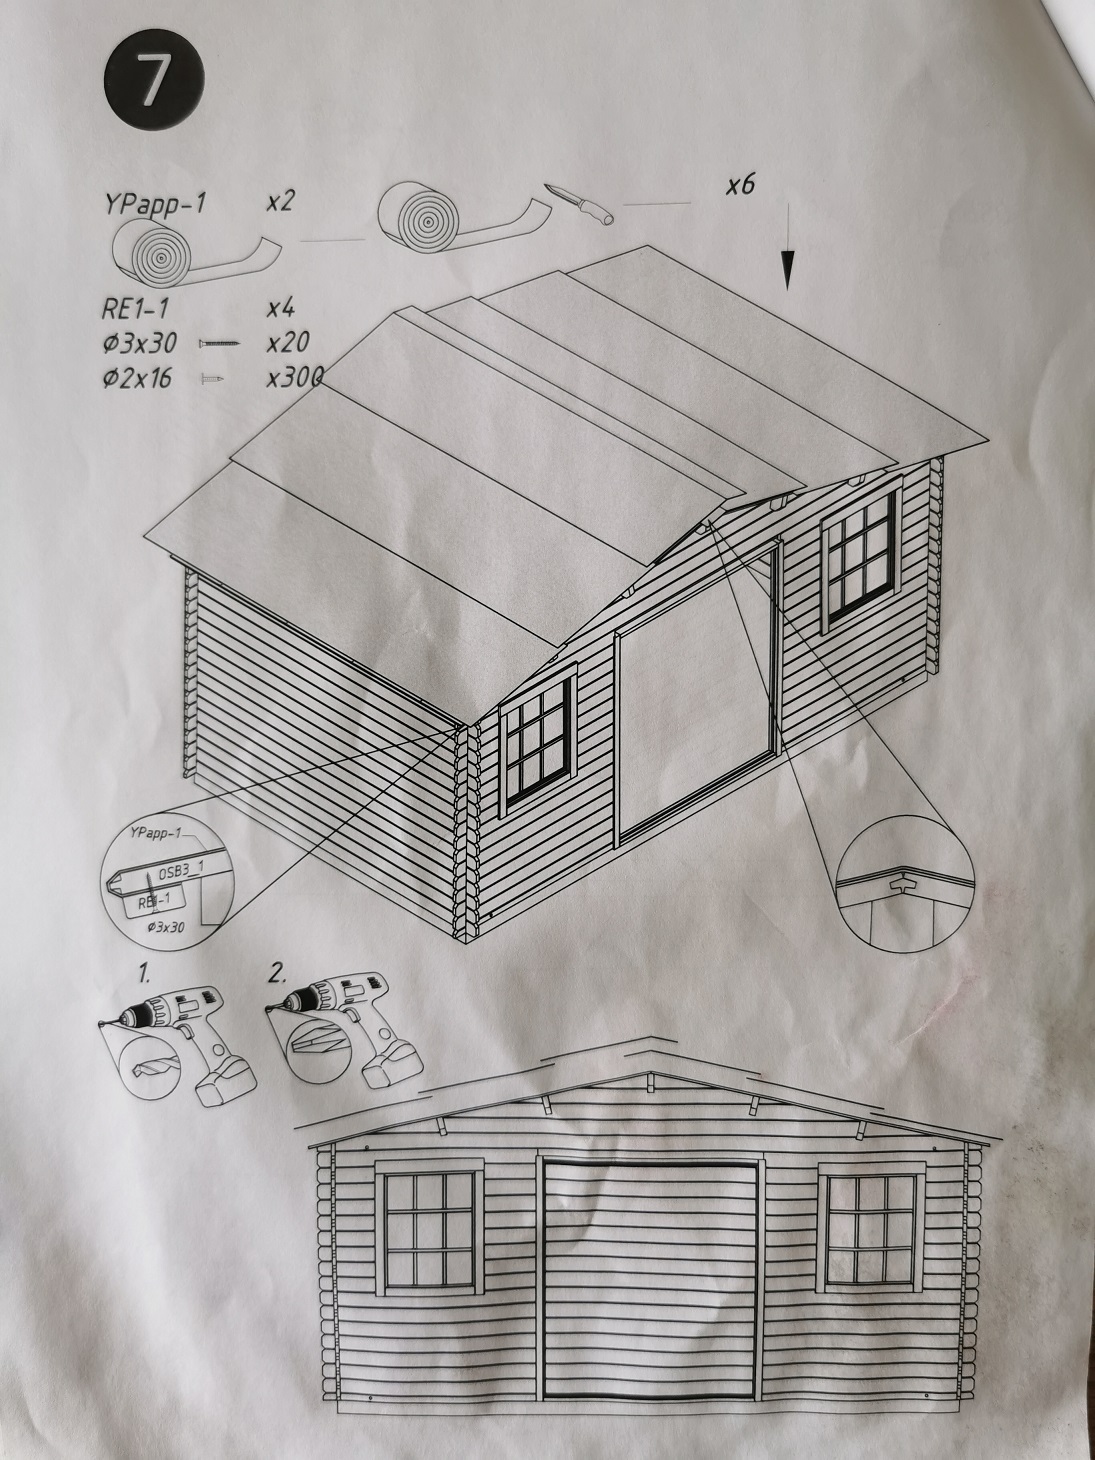 7
YPapp-1 x2
x6
RE1-1 x4
Ø3x30 x20
Ø2x16 x300
YPapp-1
OSB3_1
RE1-1
Ø3x30
1. 2.